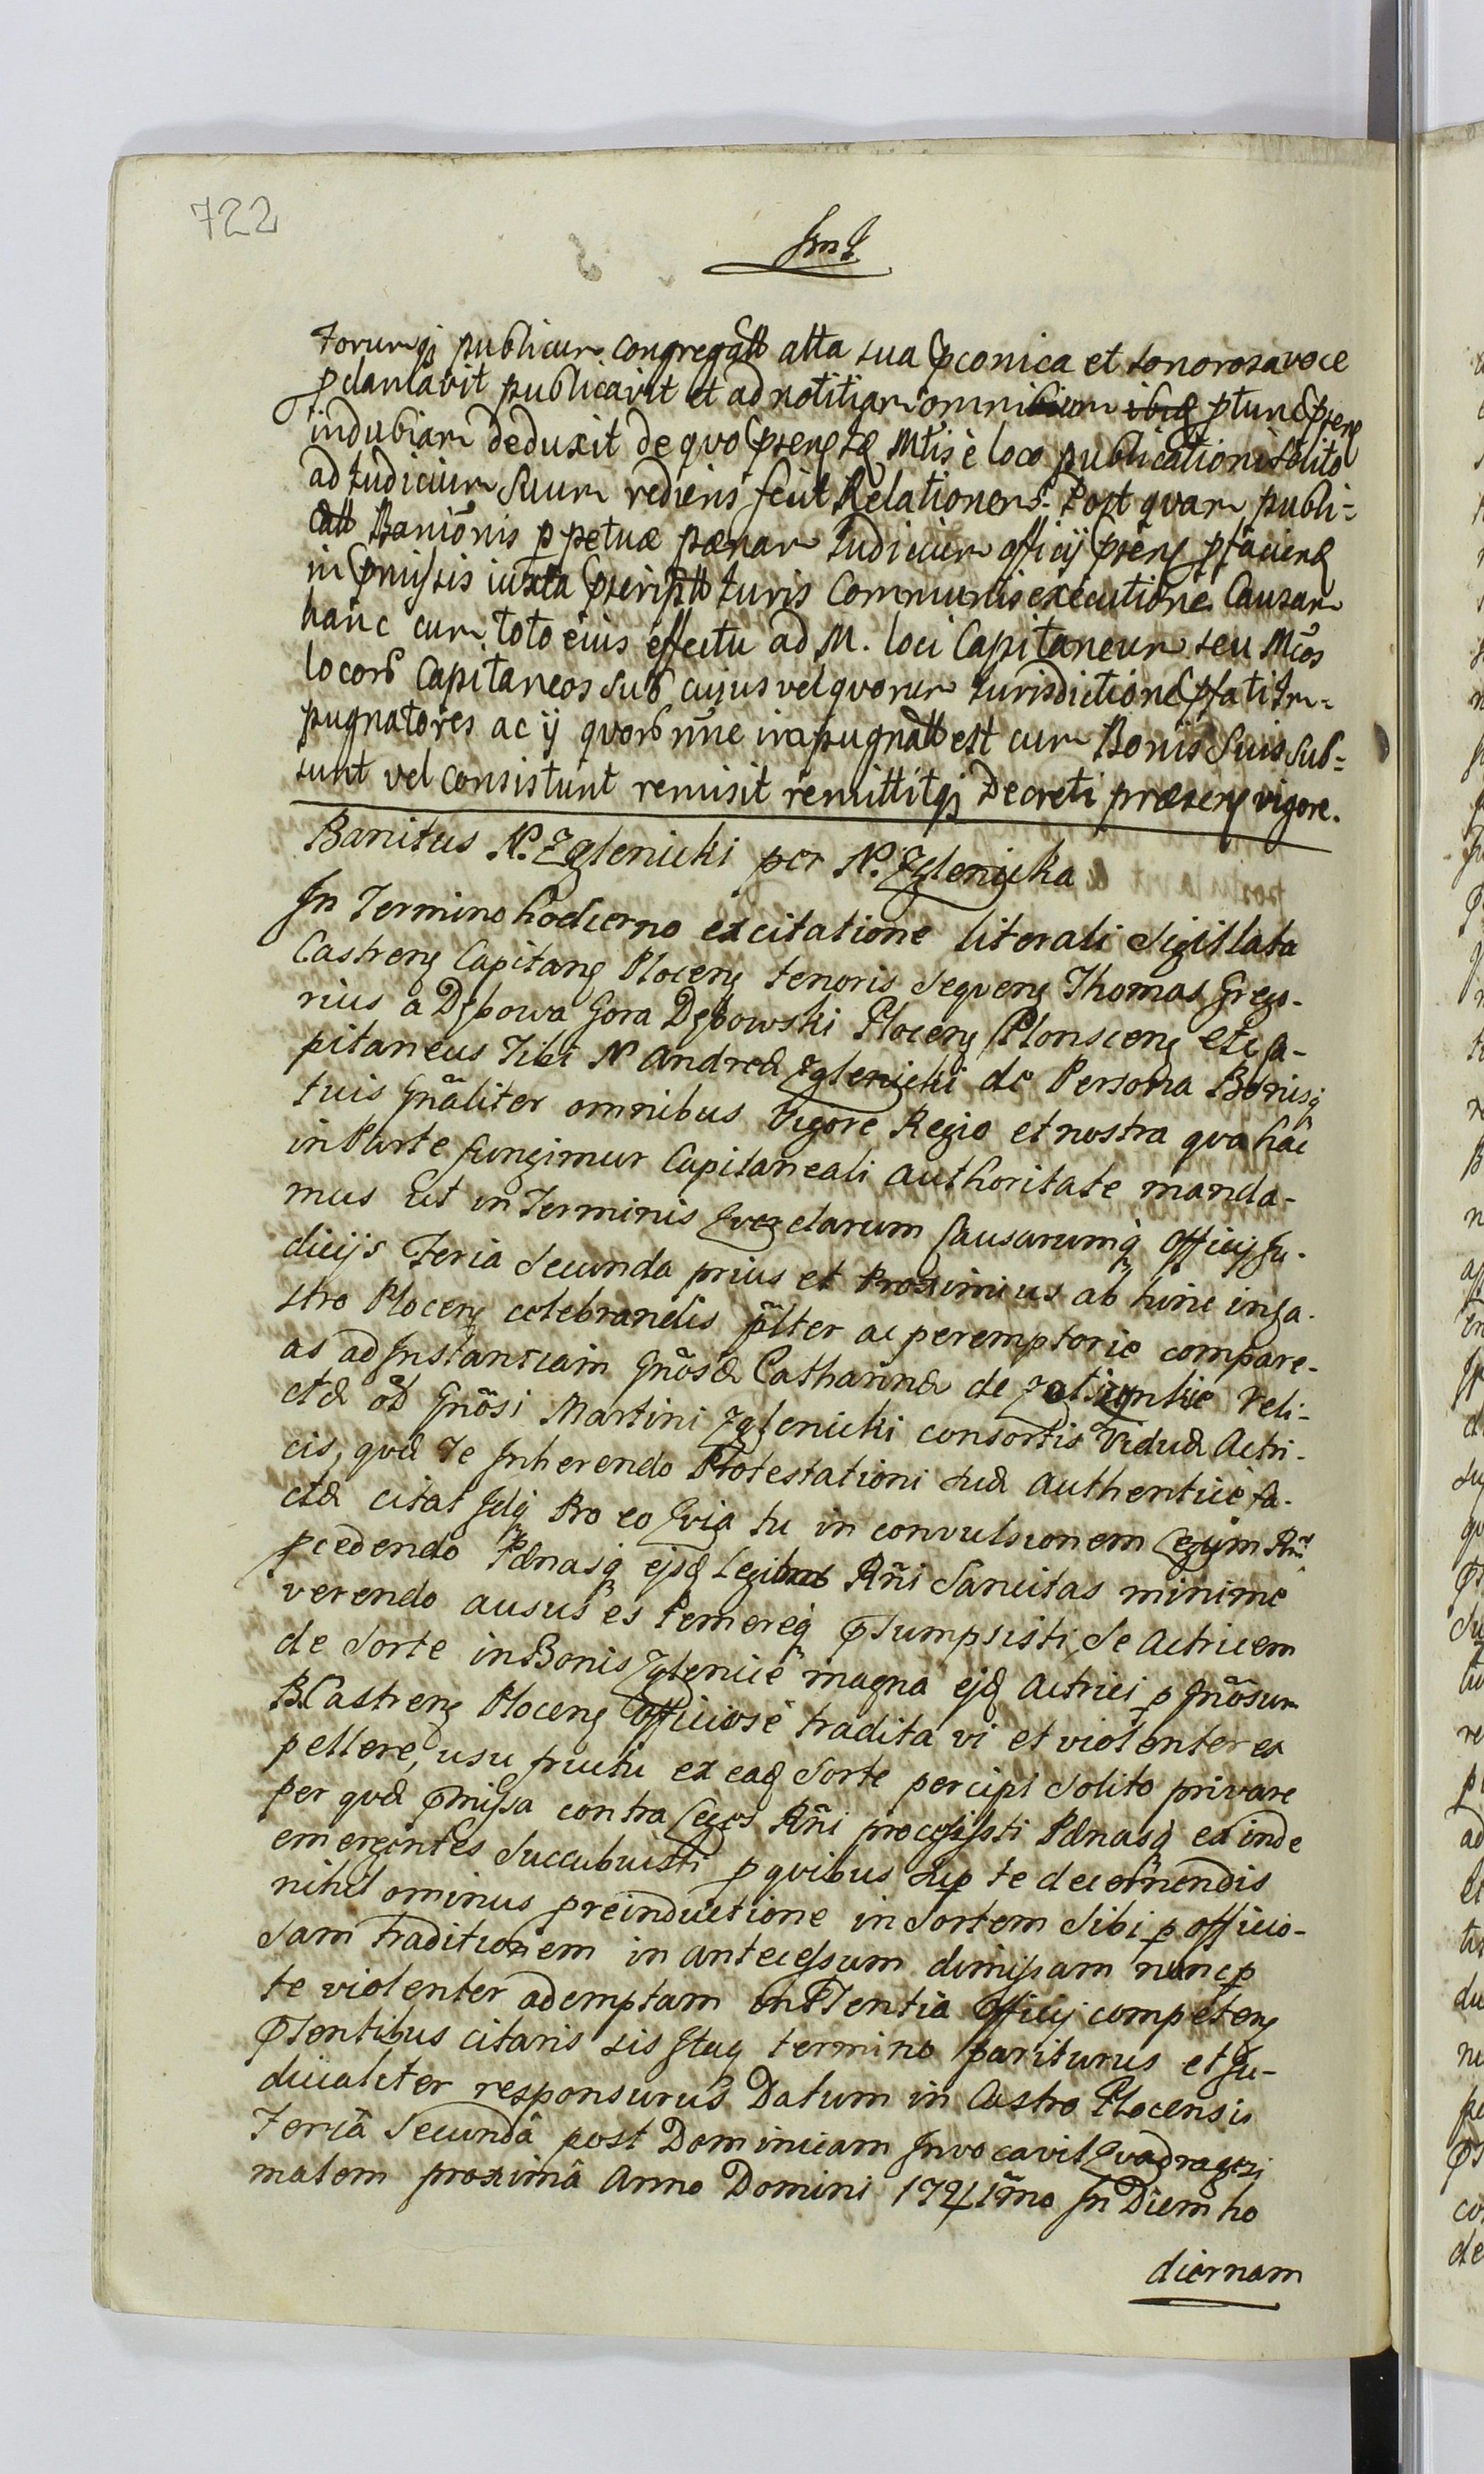 722
forumq; publicum congregatt alta sua pconica et sonorosa voce
pclamavit publicavit et ad notitiam omnibium ibiq ptunc psens
indubiam deduxit de quo psens tq Mtis è loco publicationi solito
ad Judicium Suum rediens fecit Relationem. Post quam publi-
catt Baniõnis ppetuæ pœnam Judicium officij psens pfaciend
in pmissis iuxta pscriptt Juris Communis executione Causam
hanc cum toto eius effectu ad M. loci Capitaneum seu Mcos
locord Capitaneos sub cujus vel quorum Jurisdictione pfati Im-
pugnatores ac ij quord nñe impugnatt est cum Bonis Suis sub-
sunt vel consistunt remisit remittitq; Decreti præsens vigore.
Banitus N. Zglenicki per N. Zglenicka
In Termino hodierno ex citatione literali Sigillata
Castrens Capitans Plocens tenoris Sequens Thomas Grego-
rius a Dębowa Gora Dębowski Plocens Plonscens etc Ca-
pitaneus Tibi N Andreæ Zglenicki de Persona Bonisq
tuis Gnãliter omnibus Vigore Regio et nostra qva hãc
in Parte fungimur Capitaneali authoritate manda-
mus ut in Terminis Qverelarum Causarumq Officij Ju-
dicijs Feria Secunda prius et Proximius ab hinc in Ca-
stro Plocens celebrandis pãlter ac peremptorie compare-
as ad Instantiam Gnõsæ Catharinæ de Reli-
ctæ od Gnõsi Martini Zglenicki consortis Viduæ Actri-
cis, qvæ Te Inherendo Protestationi suæ authenticè fa-
ctæ citat Idq Pro eo Qvia tu in convulsionem Legum Rni
pcedendo Pænasq ejsd Legibus Rñi Sancitas minimè
verendo ausus es temereq psumpsisti Se Actricem
de Sorte in Bonis Zglenicè magna ejd Actrici p Gnõsum
B. Castrens Plocens Officiosè tradita vi et violenter ex
pellere, usu fructu ex ead Sorte percipi Solito privare
per qvæ pmissa contra Leges Rñi processisti Pænasq ex inde
emergentes Succubuisti p qvibus sup te decernendis
nihil ominus preinductione in Sortem Sibi p officio-
sam traditionem in antecessum dimissam nunc p
te violenter ademptam in Pslentia Officij competens
pslentibus citaris sis Itaq termino pariturus et Ju-
dicialiter responsurus Datum in Castro Plocensi
Feriâ Secundâ post Dominicam Invocavit Qvadragesi
malem proximâ Anno Domini 1721mõ In Diem ho
diernam